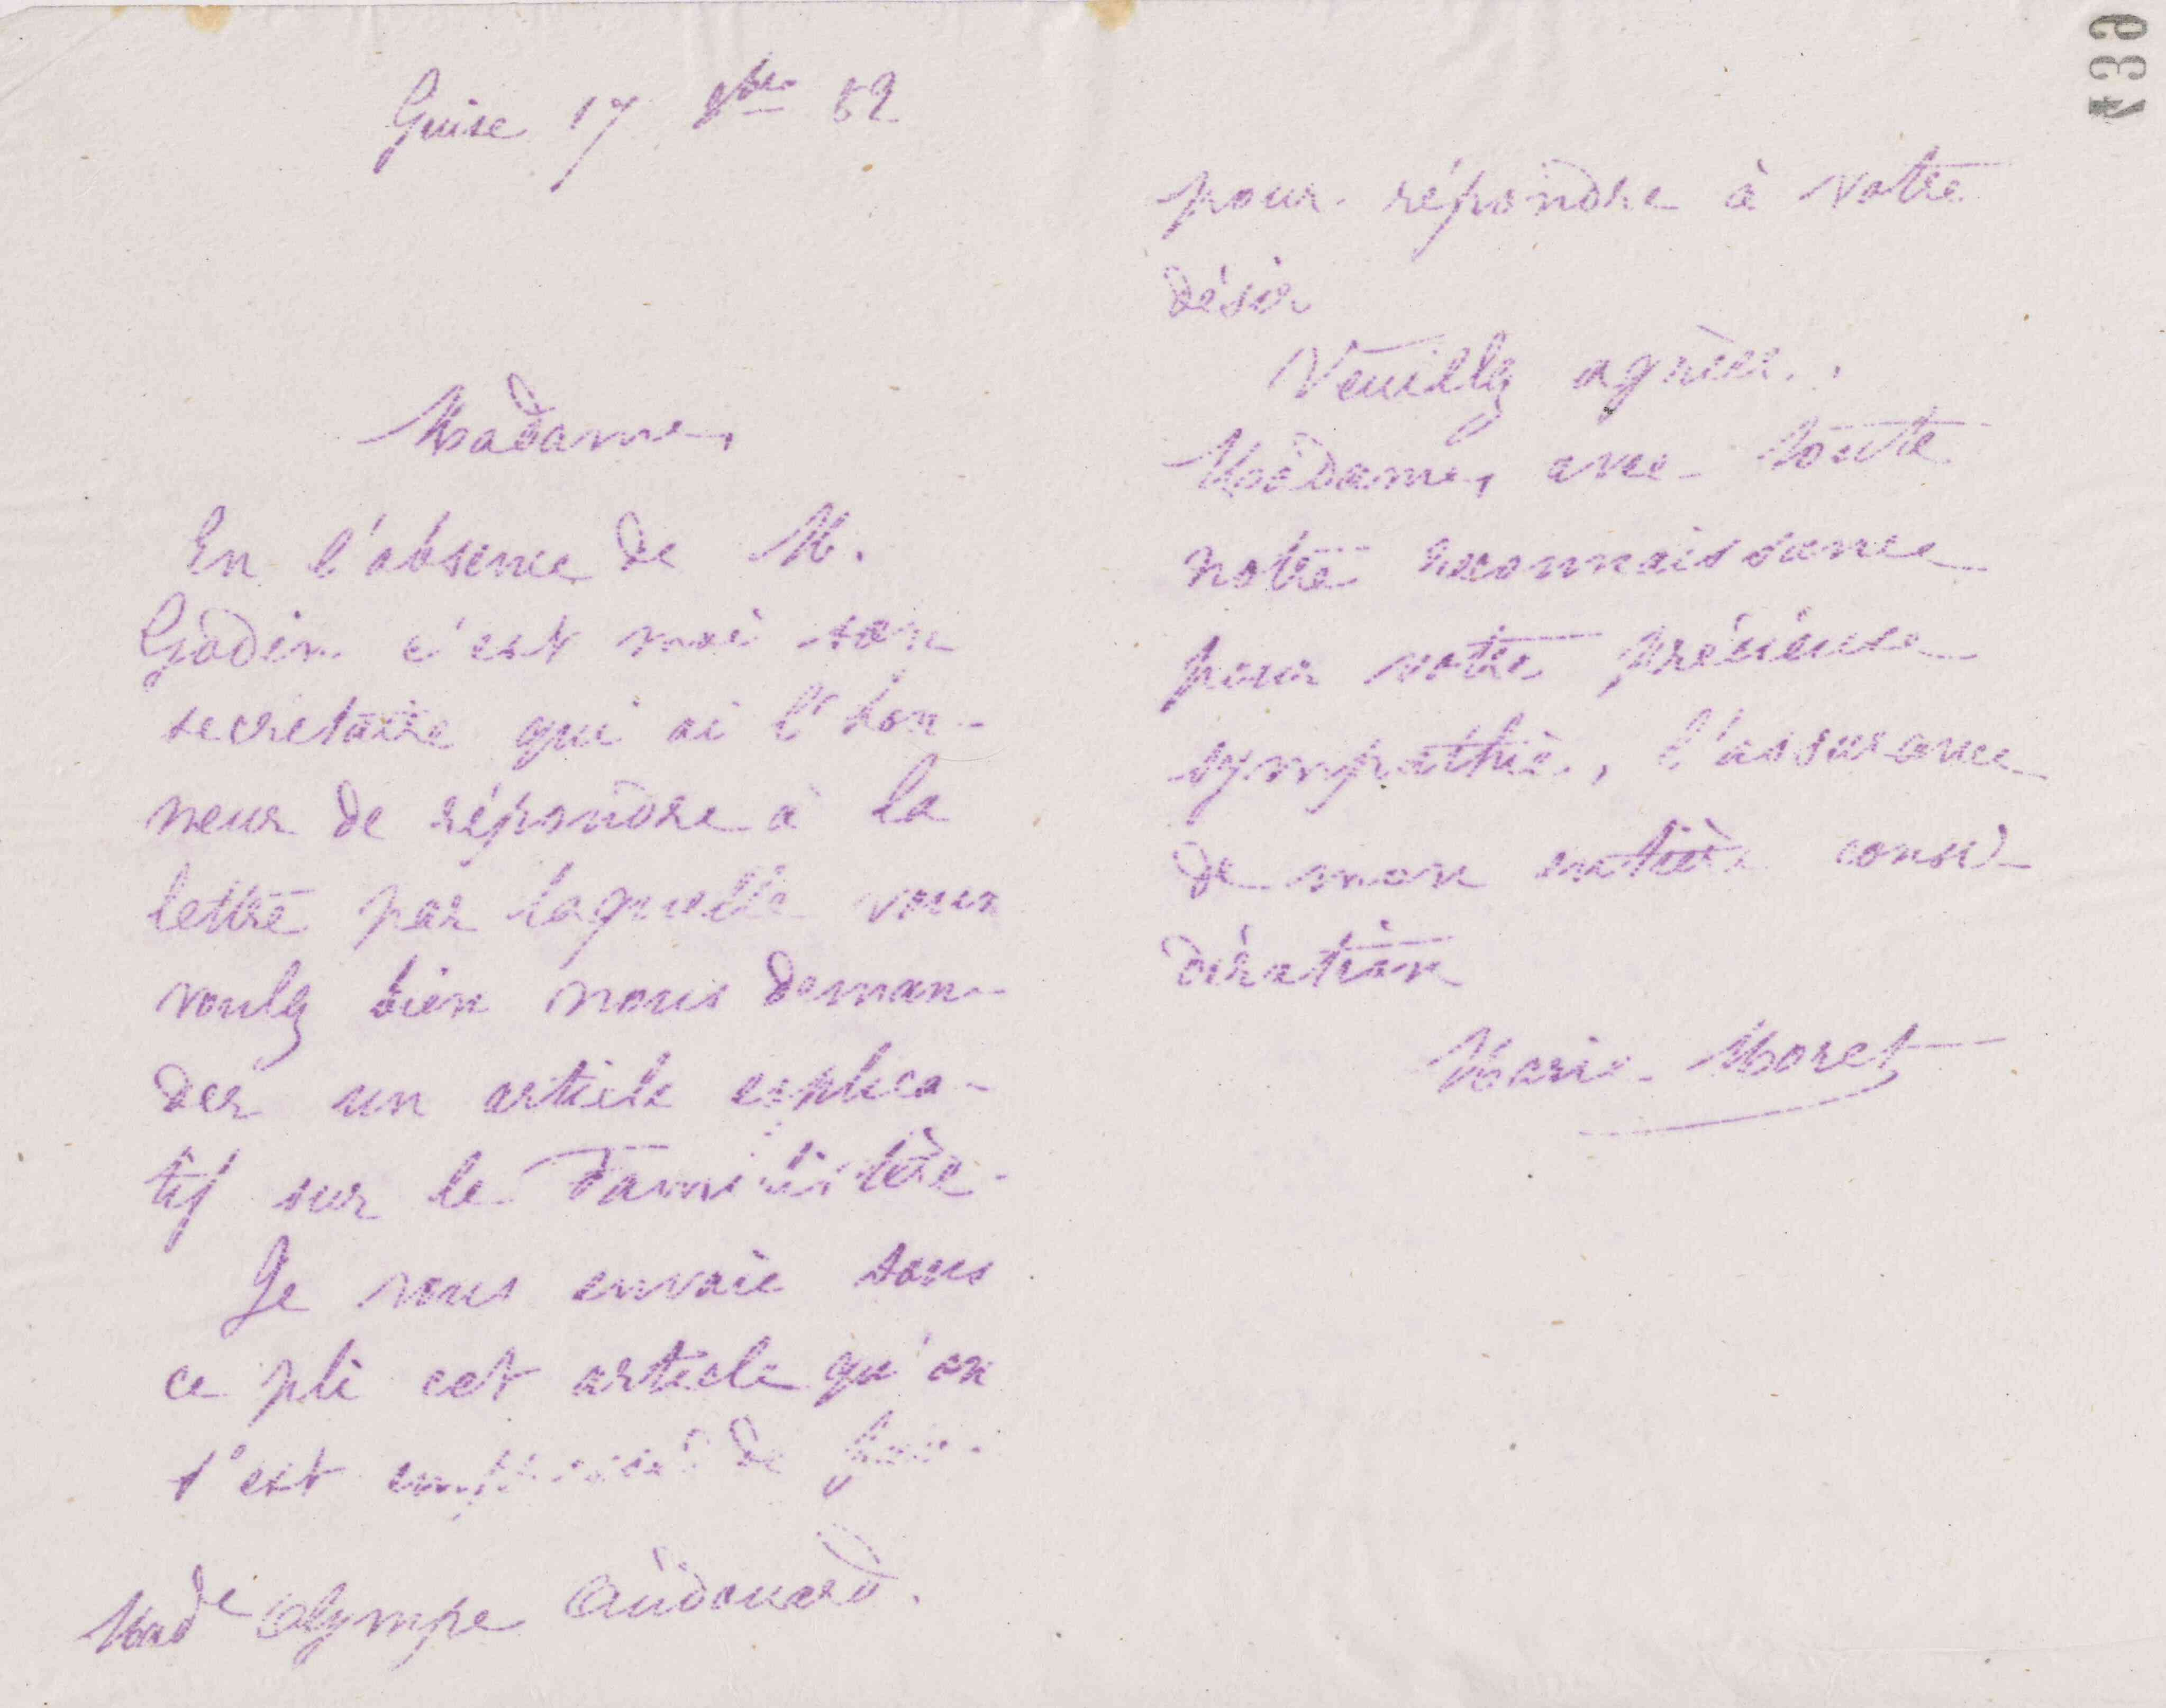 Guise 17 8bre 82
Madame,
En l'absence de M.
Godin c'est moi son
secretaire qui ai l'hon-
neur de répondre à la
lettre par laquelle vous
voulez bien nous deman-
der un article explica-
tif sur le Familistère.
Je vous envoie sous
ce pli cet article qu'on
s'est empressé de faire
Made Olympe Audouard.
pour répondre à votre
désir
Veuillez agréer,
Madame, avec toute
notre reconnaissance
pour votre précieuse
sympathie, l'assurance
de mon entière consi-
dération
Marie Moret
439